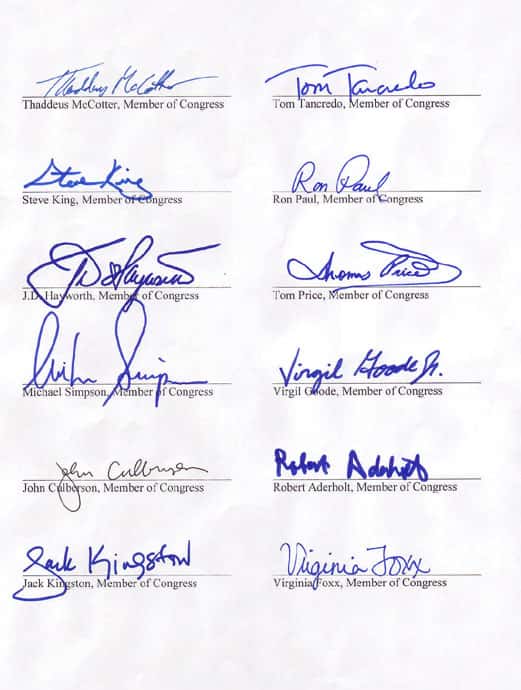 Thaddeus McCotter
Thaddeus McCotter, Member of Congress
Tom Tancredo
Tom Tancredo, Member of Congress
Steve King
Steve King, Member of Congress
Ron Paul
Ron Paul, Member of Congress
J.D. Hayworth
J.D. Hayworth, Member of Congress
Thomas Price
Tom Price, Member of Congress
Mike Simpson
Michael Simpson, Member of Congress
Virgil Goode Jr.
Virgil Goode, Member of Congress
John Culberson
John Culberson, Member of Congress
Robert Aderholt
Robert Aderholt, Member of Congress
Jack Kingston
Jack Kingston, Member of Congress
Virginia Foxx
Virginia Foxx, Member of Congress